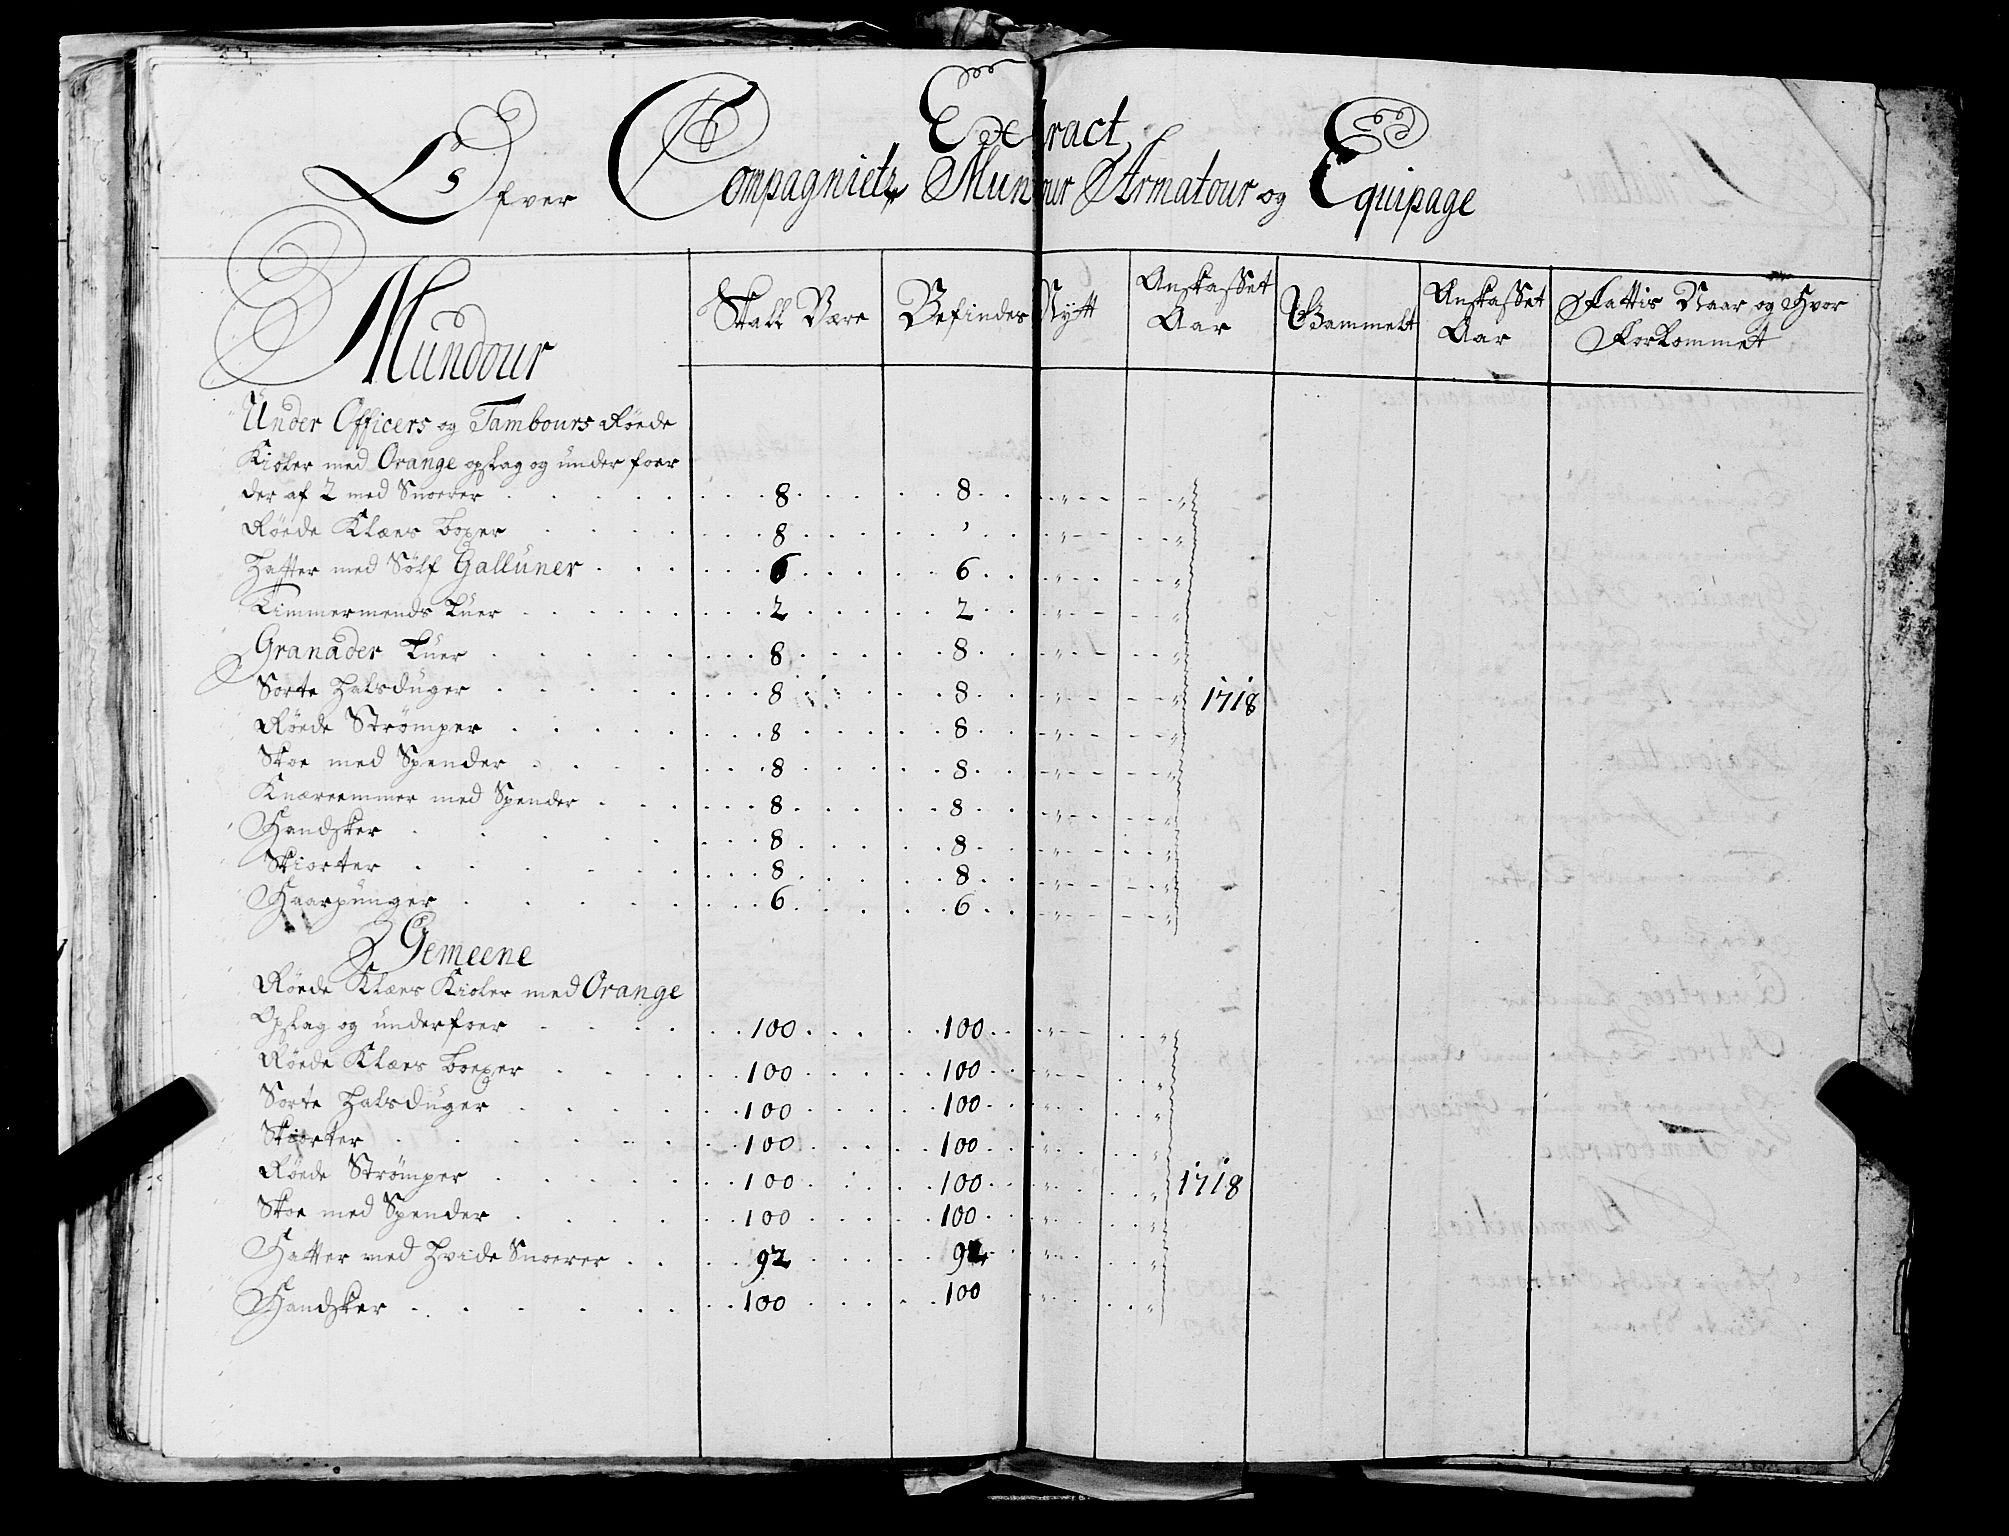 Extract
Ofver Compagniets Mundour Armatour og Equipage
Mundour | Skall Være | Befindes | Nytt | Anskaffet Aar | Gammelt | Anskaffet Aar | Fattis Naar og Hvor Forkommet
Under Officers og Tambours Røede
Kioler med Orange opslag og under foer
der af 2 med Snoerer . . . 8 . . . 8 . . . " - - "
Røede Klæes boxer . . . 8 . . . ' . . . " - - "
Hatter med Sølf Gallüner . . . 6 . . . 6 . . . " - - "
Timmermends Luer . . . 2 . . . 2 . . . " - - "
Granader Luer . . . 8 . . . 8 . . . " - - "
Sorte Halsdüger . . . 8 . . . 8 . . . " - - " 1718
Røede Strømper . . . 8 . . . 8 . . . " - - "
Skoe med Spender . . . 8 . . . 8 . . . " - - "
Knæreemmer med Spender . . . 8 . . . 8 . . . " - - "
Handsker . . . 8 . . . 8 . . . " - - "
Skiorter . . . 8 . . . 8 . . . " - - "
Haarpunger . . . 6 . . . 6 . . . " - - "
Gemeene
Røede Klæes Kioler med Orange
Opslag og underfoer . . . 100 . . . 100 . . . " - - "
Røede Klæes boexer . . . 100 . . . 100 . . . " - - "
Sorte Halsdüger . . . 100 . . . 100 . . . " . . "
Skiorter . . . 100 . . . 100 . . . " . . "
Røede Strømper . . . 100 . . . 100 . . . " . . " 1718
Skoe med Spender . . . 100 . . . 100 . . . " . . "
Hatter med Hvide Snoerer . . . 92 . . . 92 . . . " . . "
Handsker . . . 100 . . . 100 . . . " . . "